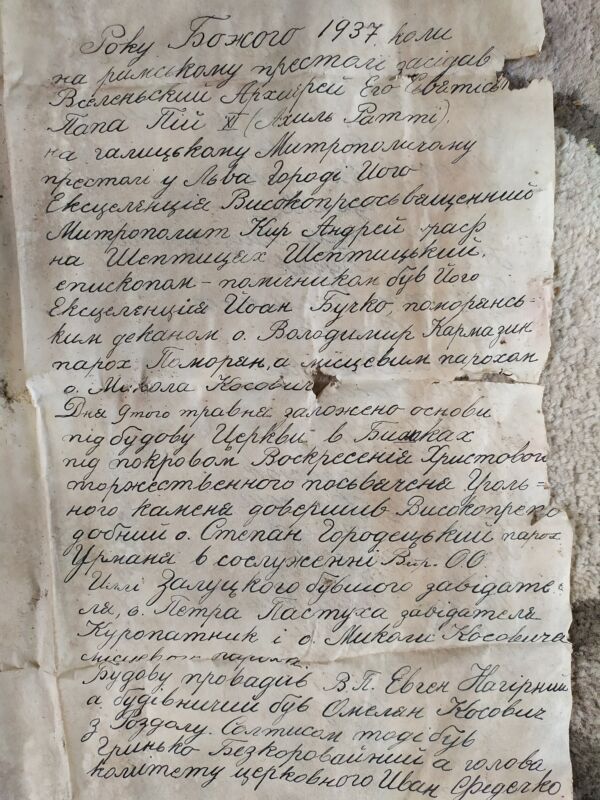 Року Божого 1937, коли
на римському престолі засідав
Вселеньский Архиєрей Его Святість
Папа Пій XI (Ахиль Ратті).
на галицькому Митрополичому
престолі у Льва Городі Його
Ексцеленція Високопреосьвященний
Митрополит Кир Андрей граф
на Шептицях Шептицький,
єпископом-помічником був Його
Ексцеленція Йоан Бучко, поморянсь-
ким деканом о. Володимир Кармазин
парох Поморян, а місцевим парохом
о. Микола Косович.
Дня 9того травня заложено основи
під будову Церкви в Бишках
під покровом Воскресенія Христового
торжественного посьвяченя Уголь=
ного каменя довершив Високопрепо
добний о. Степан Городецький парох
Урманя в сослуженні Впр. ОО
Іллі Залуцкого бувшого завідате-
ля, о. Петра Пастуха завідателя
Куропатник і о. Миколи Косовича
місцевого пароха.
Будову провадив В.П. Евген Нагірний
а будівничий був Омелян Косович
з Роздолу. Солтисом тоді був
Гринько Безкоровайний а голова
комітету церковного Иван